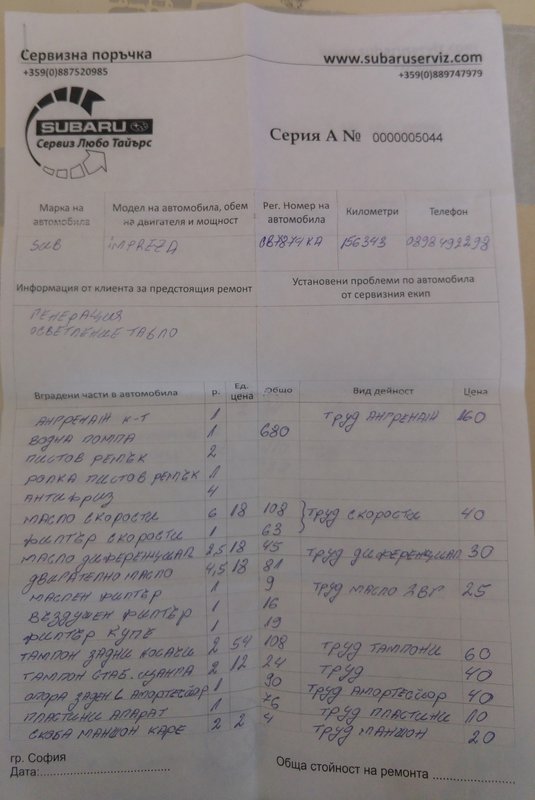 Сервизна поръчка www.subaruserviz.com
+359(0)887520985 +359(0)889747979
SUBARU
Сервиз Любо Тайърс
Серия А № 0000005044
Марка на автомобила Модел на автомобила, обем на двигателя и мощност Рег. Номер на автомобила Километри Телефон
SUB IMPREZA CB7874KA 156343 0898492298
Информация от клиента за предстоящия ремонт Установени проблеми по автомобила от сервизния екип
ГЕНЕРАЦИЯ
ОСВЕТЛЕНИЕ ТАБЛО
Вградени части в автомобила р. Ед. цена Общо Вид дейност Цена
АНГРЕНАЖ К-Т 1 ТРУД АНГРЕНАЖ 160
ВОДНА ПОМПА 1 680
ПИСТОВ РЕМЪК 2
РОЛКА ПИСТОВ РЕМЪК 1
АНТИФРИЗ 4
МАСЛО СКОРОСТИ 6 18 108 ТРУД СКОРОСТИ 40
ФИЛТЪР СКОРОСТИ 1 63
МАСЛО ДИФЕРЕНЦИАЛ 2,5 18 45 ТРУД ДИФЕРЕНЦИАЛ 30
ДВИГАТЕЛНО МАСЛО 4,5 18 81
МАСЛЕН ФИЛТЪР 1 9 ТРУД МАСЛО ДВГ 25
ВЪЗДУШЕН ФИЛТЪР 1 16
ФИЛТЪР КУПЕ 1 19
ТАМПОН ЗАДНИ НОСАЧИ 2 54 108 ТРУД ТАМПОНИ 60
ТАМПОН СТАБ. ЩАНГА 2 12 24 ТРУД 40
ОПОРА ЗАДЕН АМОРТЕСЬОР 1 90 ТРУД АМОРТЕСЬОР 40
ПЛАСТИНИ АПАРАТ 1 76 ТРУД ПЛАСТИНИ 10
СКОБА МАНШОН КАРЕ 2 2 4 ТРУД МАНШОН 20
гр. София
Дата: Обща стойност на ремонта